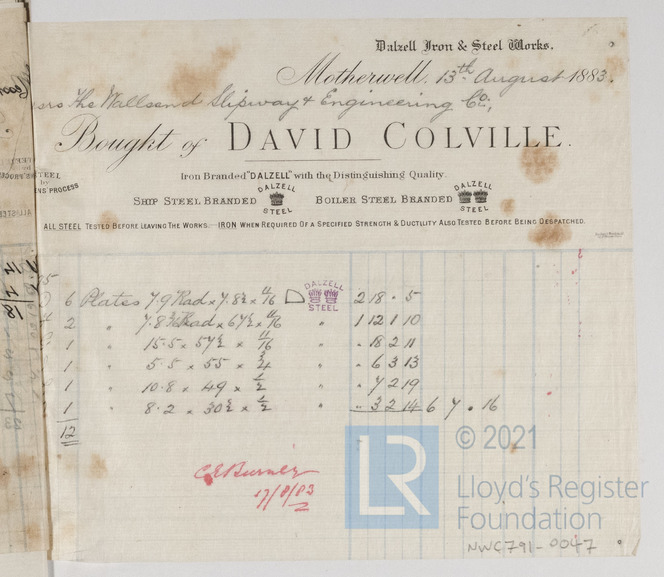 Dalzell Iron & Steel Works.
Motherwell. 13th August 1883.
The Wallsend Slipway & Engineering Co:,
Bought of DAVID COLVILLE.
Iron Branded "DALZELL" with the Distinguishing Quality.
SHIP STEEL BRANDED DALZELL STEEL BOILER STEEL BRANDED DALZELL STEEL
ALL STEEL TESTED BEFORE LEAVING THE WORKS.—IRON WHEN REQUIRED OF A SPECIFIED STRENGTH & DUCTILITY ALSO TESTED BEFORE BEING DESPATCHED.
STEEL
by
PROCESS
6 Plates 7.9 Rad x 7.8½ x 11/16 DALZELL STEEL 2 18 . 5
2 " 7.8 Rad x 67½ x 11/16 " 1 12 1 10
1 " 15.5 x 57½ x 11/16 " 18 2 11
1 " 5.5 x 55 x ¾ " 6 3 13
1 " 10.8 x 49 x ½ " 7 2 19
1 " 8.2 x 30½ x ½ " 3 2 14 6 7 . 16
12
17/8/83
LR © 2021
Lloyd's Register
Foundation
NWC791-0047